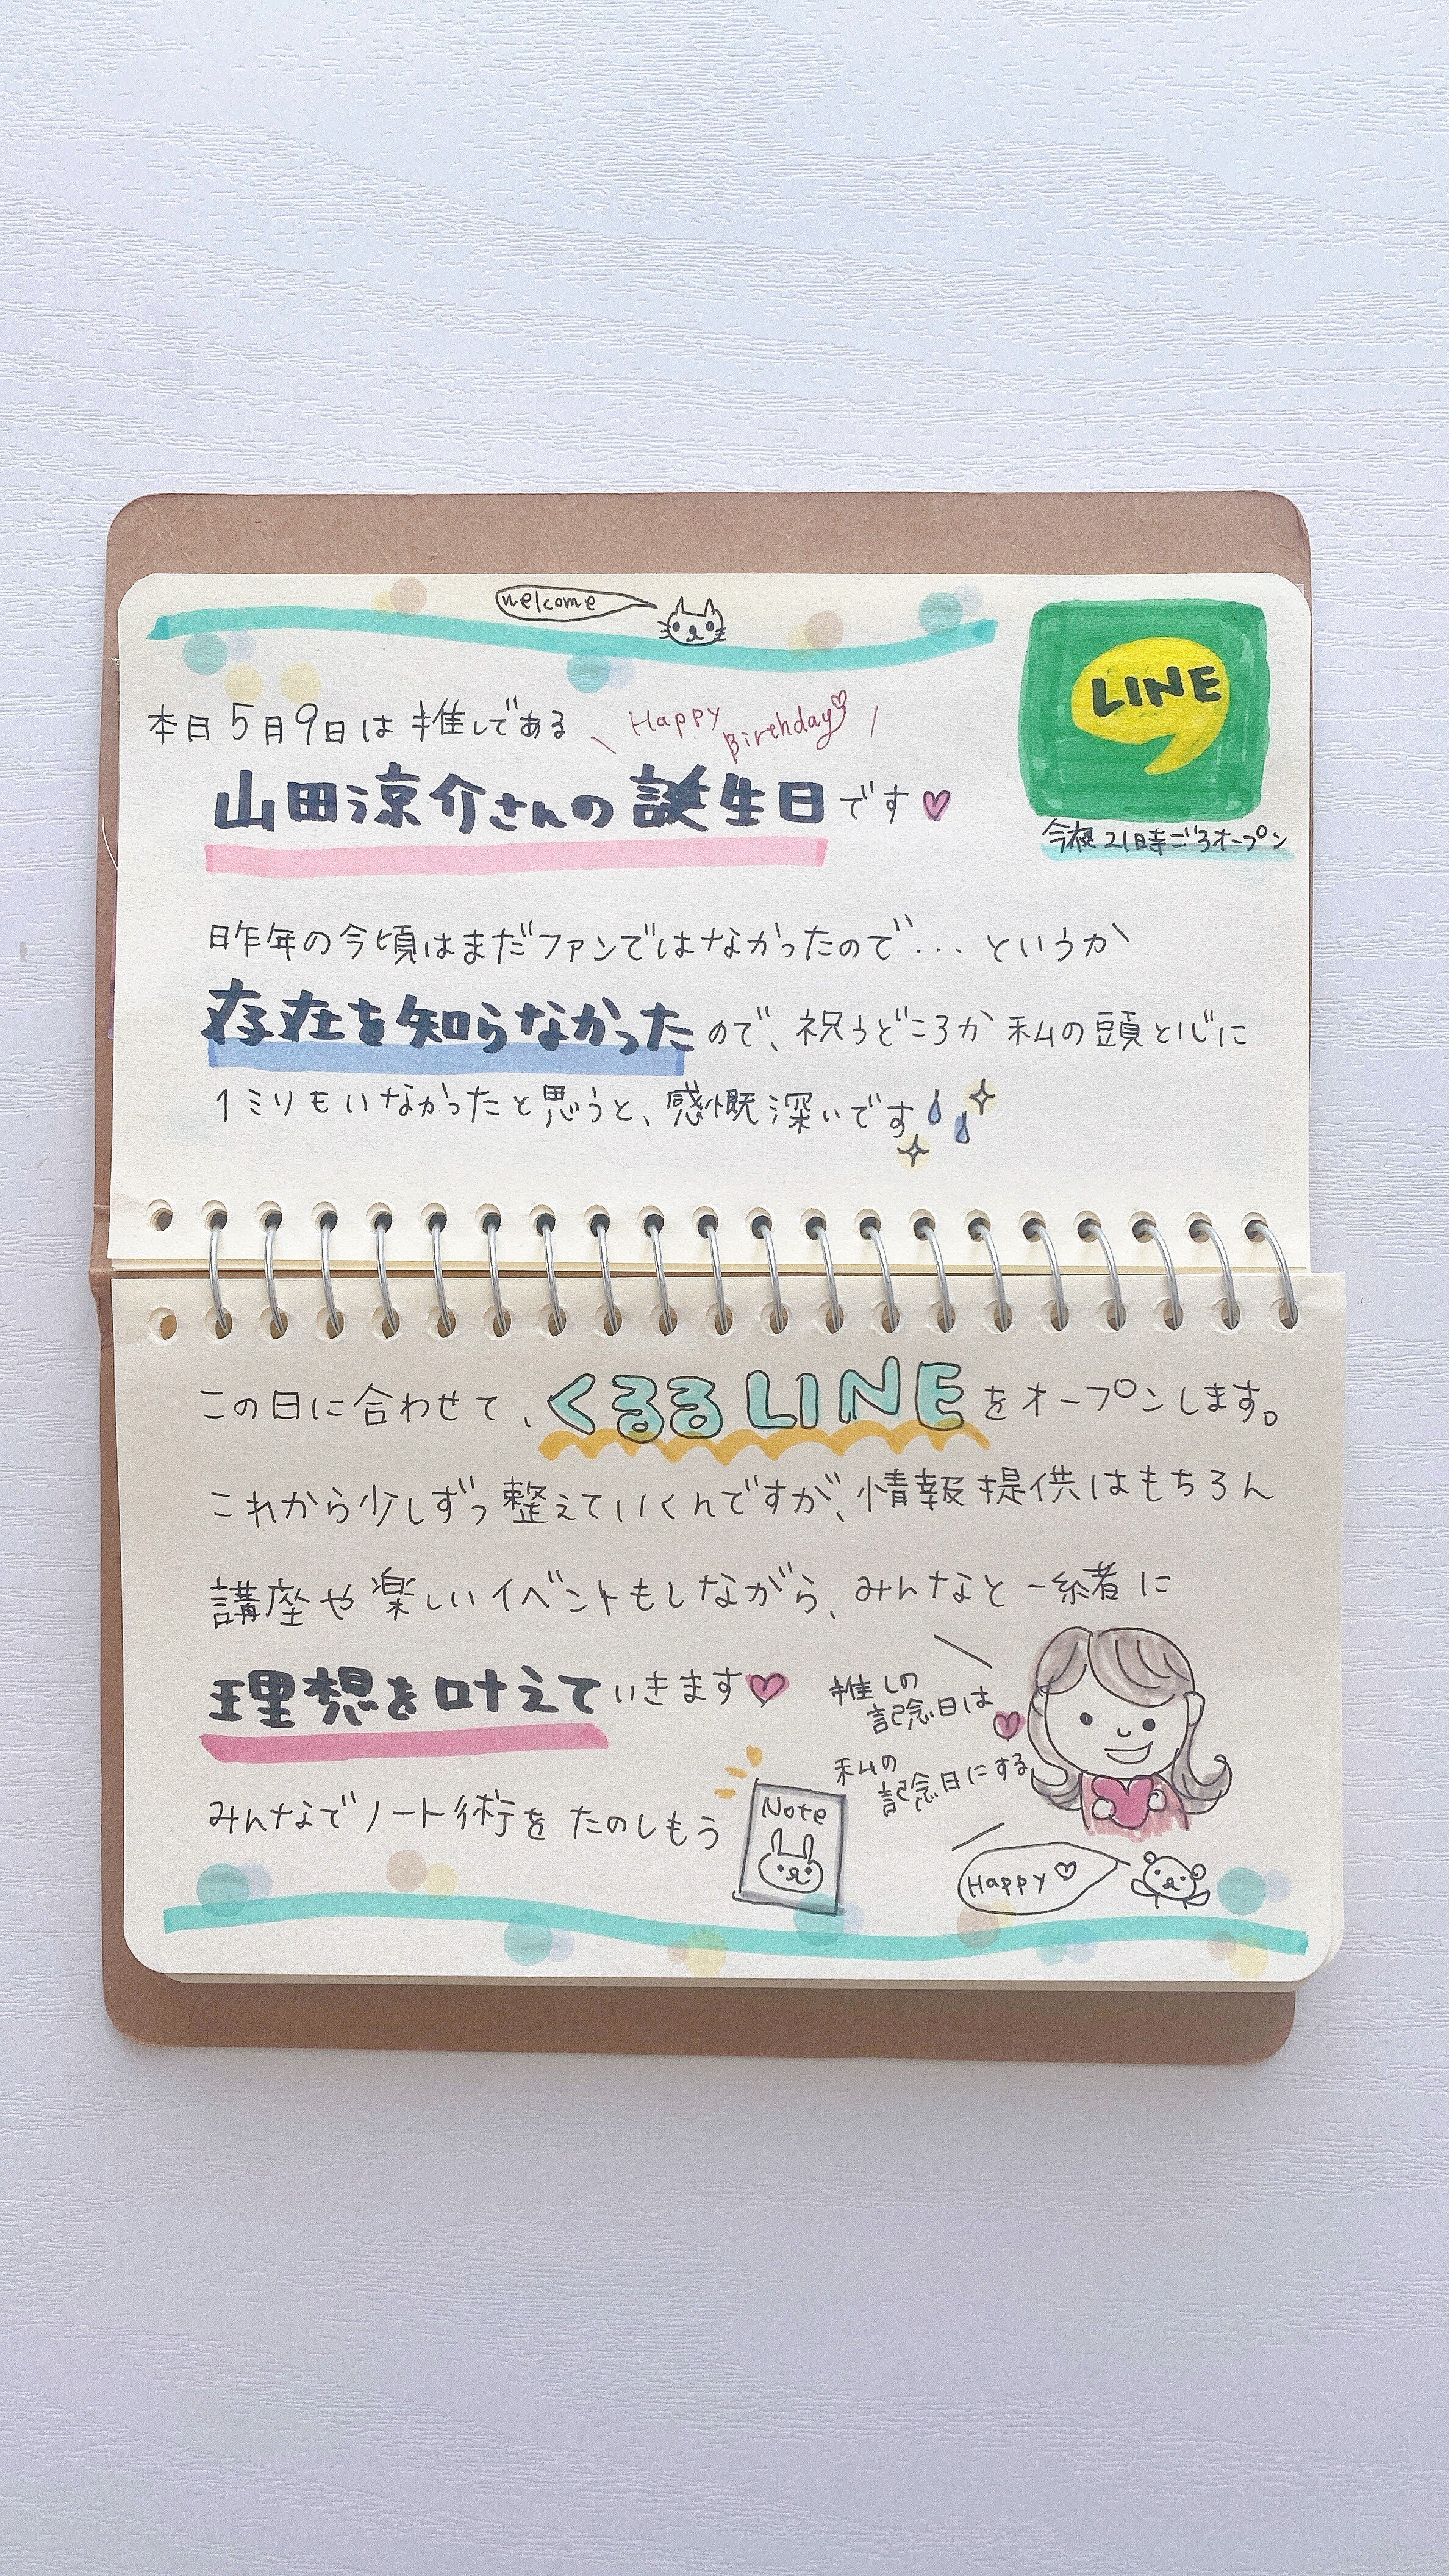 welcome
本日5月9日は推しである
Happy
Birthday
LINE
山田涼介さんの誕生日です♡
今夜21時ごろオープン
昨年の今頃はまだファンではなかったので...というか
存在を知らなかったので、祝うどころか私の頭と心に
1ミリもいなかったと思うと、感慨深いです
この日に合わせて、くるるLINEをオープンします。
これから少しずつ整えていくんですが、情報提供はもちろん
講座や楽しいイベントもしながら、みんなと一緒に
理想を叶えていきます♡
推しの
記念日は
私の
記念日にする
みんなでノート術をたのしもう
Note
Happy♡